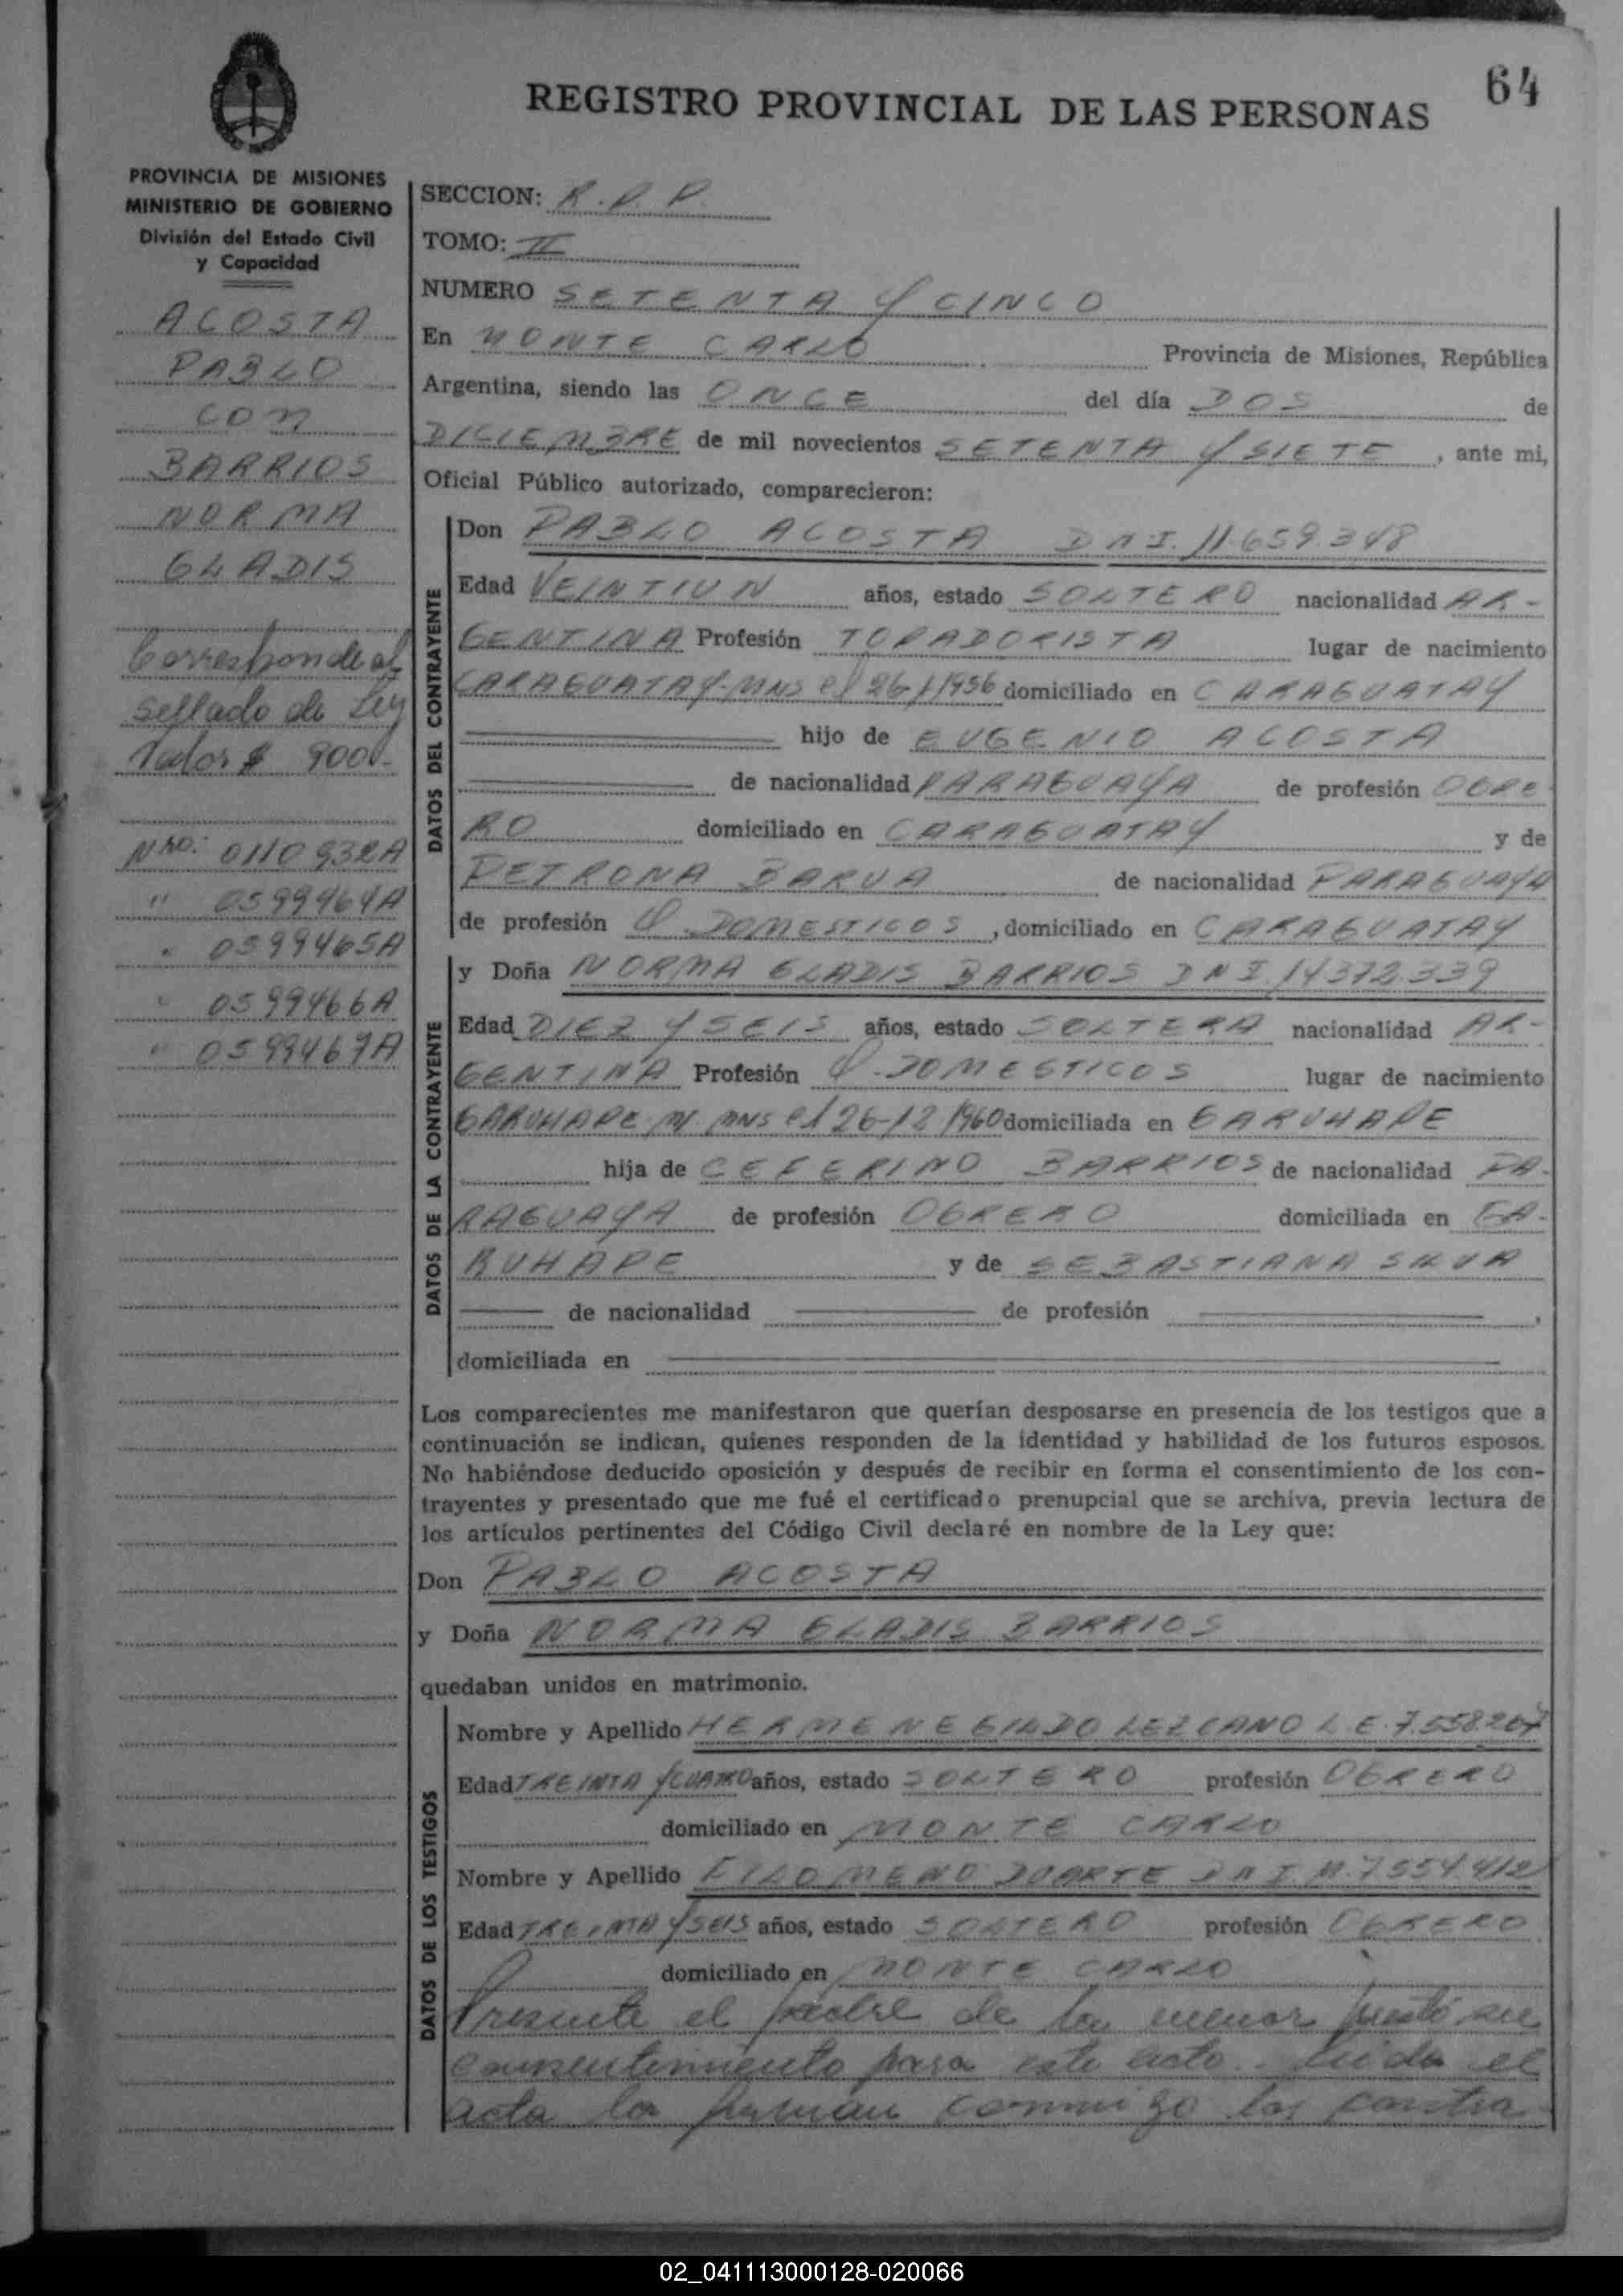 64
REGISTRO PROVINCIAL DE LAS PERSONAS
PROVINCIA DE MISIONES
MINISTERIO DE GOBIERNO
División del Estado Civil
y Capacidad
ACOSTA
PABLO
CON
BARRIOS
NORMA
GLADIS
Corresponde al
sellado de Ley
Valor $ 900.-
Nro: 0110932A
" 0599464A
" 0599465A
" 0599466A
" 0599467A
SECCION: R.P.P.
TOMO: II
NUMERO SETENTA Y CINCO
En MONTE CARLO Provincia de Misiones, República
Argentina, siendo las ONCE del día DOS de
DICIEMBRE de mil novecientos SETENTA Y SIETE, ante mi,
Oficial Público autorizado, comparecieron:
DATOS DEL CONTRAYENTE
Don PABLO ACOSTA DNI. 11.659.348
Edad VEINTIUN años, estado SOLTERO nacionalidad AR-
GENTINA Profesión TOPADORISTA lugar de nacimiento
CARAGUATAY-MNS el 26/1/1956 domiciliado en CARAGUATAY
hijo de EUGENIO ACOSTA
de nacionalidad PARAGUAYA de profesión OBRE
RO domiciliado en CARAGUATAY y de
PETRONA BARUA de nacionalidad PARAGUAYA
de profesión Q. DOMESTICOS, domiciliado en CARAGUATAY
DATOS DE LA CONTRAYENTE
y Doña NORMA GLADIS BARRIOS DNI. 14372.339
Edad DIEZ Y SEIS años, estado SOLTERA nacionalidad AR-
GENTINA Profesión Q. DOMESTICOS lugar de nacimiento
GARUHAPE MNS el 26-12-1960 domiciliada en GARUHAPE
hija de CEFERINO BARRIOS de nacionalidad PA-
RAGUAYA de profesión OBRERO domiciliada en GA-
RUHAPE y de SEBASTIANA SILVA
de nacionalidad de profesión ,
domiciliada en
Los comparecientes me manifestaron que querían desposarse en presencia de los testigos que a
continuación se indican, quienes responden de la identidad y habilidad de los futuros esposos.
No habiéndose deducido oposición y después de recibir en forma el consentimiento de los con-
trayentes y presentado que me fué el certificado prenupcial que se archiva, previa lectura de
los artículos pertinentes del Código Civil declaré en nombre de la Ley que:
Don PABLO ACOSTA
y Doña NORMA GLADIS BARRIOS
quedaban unidos en matrimonio.
DATOS DE LOS TESTIGOS
Nombre y Apellido HERMENEGILDO LEZCANO L.E. 7.558.207
Edad TREINTA Y CUATRO años, estado SOLTERO profesión OBRERO
domiciliado en MONTE CARLO
Nombre y Apellido FILOMENO DUARTE DNI. M. 7554.412
Edad TREINTA Y SEIS años, estado SOLTERO profesión OBRERO
domiciliado en MONTE CARLO
Presente el padre de la menor prestó su
consentimiento para este acto. Leida el
acta la firman conmigo los contra-
02_041113000128-020066